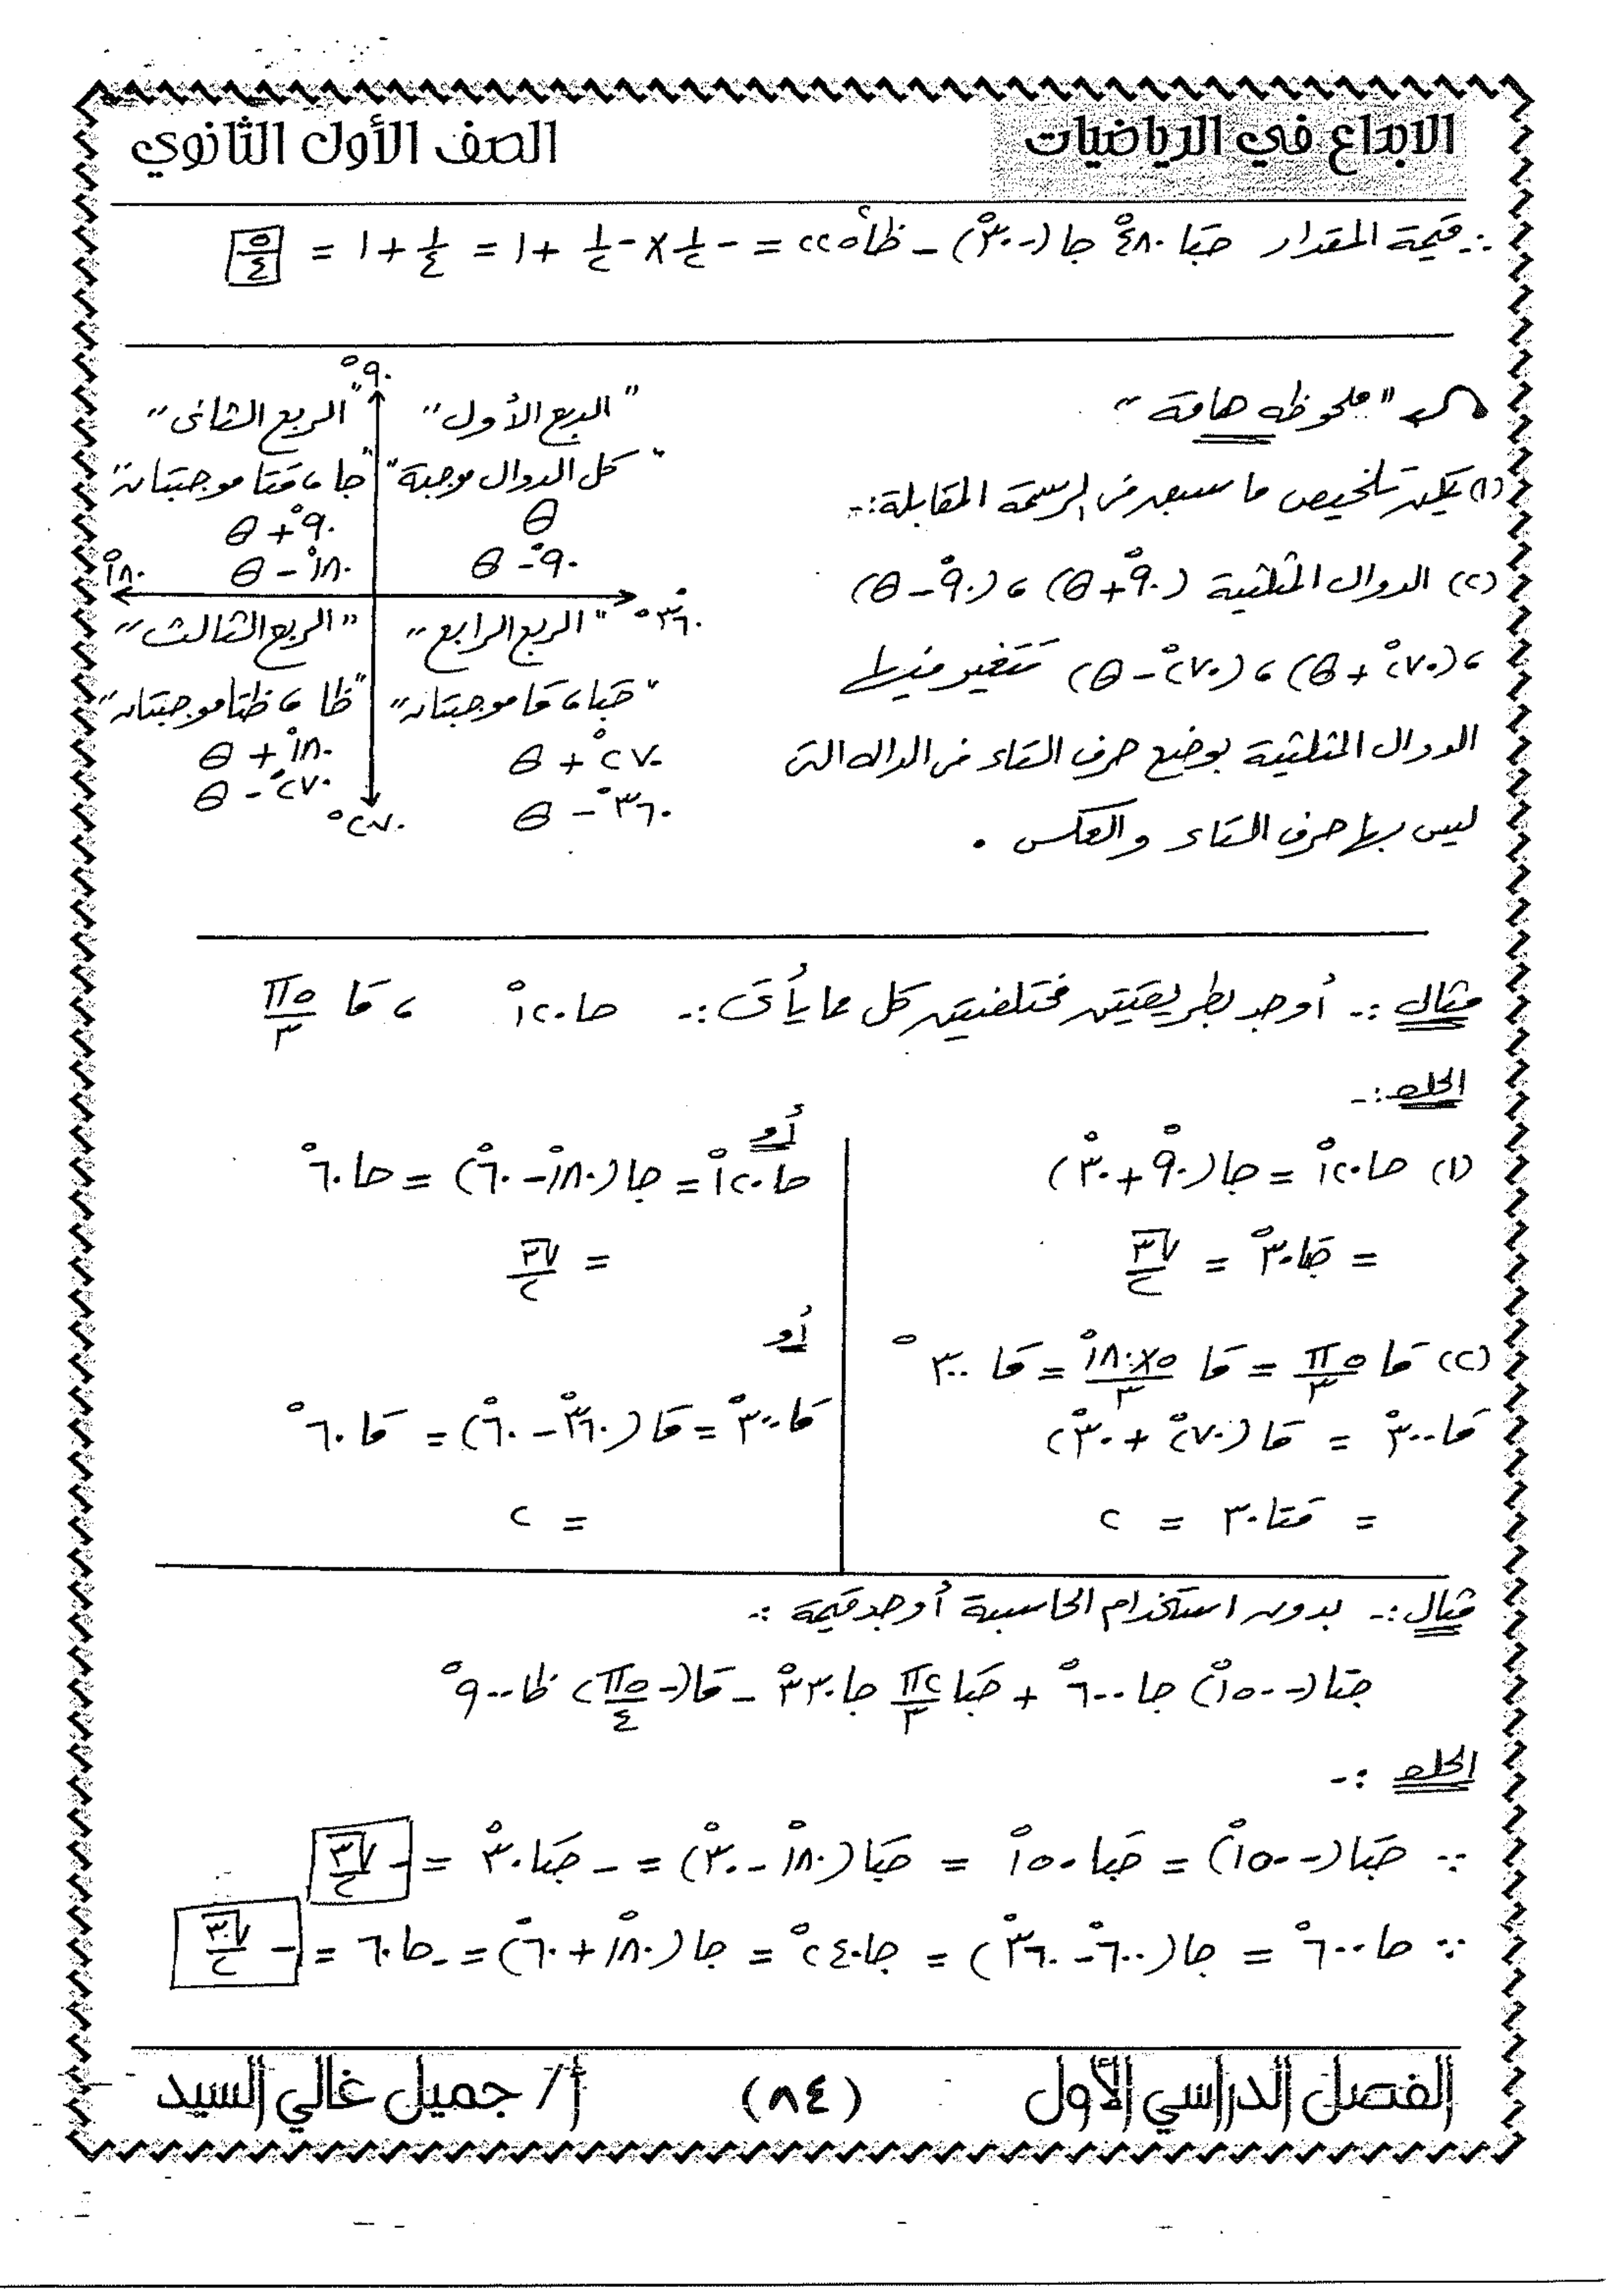 الابداع في الرياضيات
الصف الأول الثانوي
∴ قيمة المقدار جتا ٤٨٠° جا (-٣٠°) - ظا ٢٢٥° = -١/٢ × -١/٢ + ١ = ١/٤ + ١ = ٥/٤
"ملحوظه هامة"
(١) يمكن تلخيص ما سبق فى الرسمة المقابلة:-
(٢) الدوال المثلثية (٩٠° + θ) ، (٩٠° - θ)
، (٢٧٠° + θ) ، (٢٧٠° - θ) تتغير فيها
الدوال المثلثية بوضع حرف التاء فى الداله التى
ليس بها حرف التاء والعكس .
٩٠°
"الربع الأول"
"كل الدوال موجبة"
θ
٩٠° - θ
"الربع الثانى"
"جا ، قتا موجبتان"
٩٠° + θ
١٨٠° - θ
١٨٠°
٣٦٠°
"الربع الثالث"
"ظا ، ظتا موجبتان"
١٨٠° + θ
٢٧٠° - θ
"الربع الرابع"
"جتا ، قا موجبتان"
٢٧٠° + θ
٣٦٠° - θ
٢٧٠°
مثال :- أوجد بطريقتين مختلفتين كل مما يأتى :- جا ١٢٠° ، قا ٥π/٣
الحل :-
(١) جا ١٢٠° = جا (٩٠° + ٣٠°)
= جتا ٣٠° = √٣/٢
أو
جا ١٢٠° = جا (١٨٠° - ٦٠°) = جا ٦٠°
= √٣/٢
(٢) قا ٥π/٣ = قا ٥×١٨٠°/٣ = قا ٣٠٠°
قا ٣٠٠° = قا (٢٧٠° + ٣٠°)
= قتا ٣٠ = ٢
أو
قا ٣٠٠° = قا (٣٦٠° - ٦٠°) = قا ٦٠°
= ٢
مثال :- بدون استخدام الحاسبة أوجد قيمة :-
جتا (-١٥٠°) جا ٦٠٠° + جتا ٢π/٣ جا ٣٣٠° - قا (-٥π/٤) ظا ٩٠٠°
الحل :-
∵ جتا (-١٥٠°) = جتا ١٥٠° = جتا (١٨٠° - ٣٠°) = - جتا ٣٠° = -√٣/٢
∵ جا ٦٠٠° = جا (٦٠٠° - ٣٦٠°) = جا ٢٤٠° = جا (١٨٠° + ٦٠°) = -جا ٦٠ = -√٣/٢
الفصل الدراسي الأول
(٨٤)
أ/ جميل غالي السيد